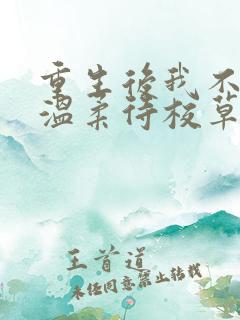 重生後我不
溫柔待校草
王首道
未经同意禁止转载